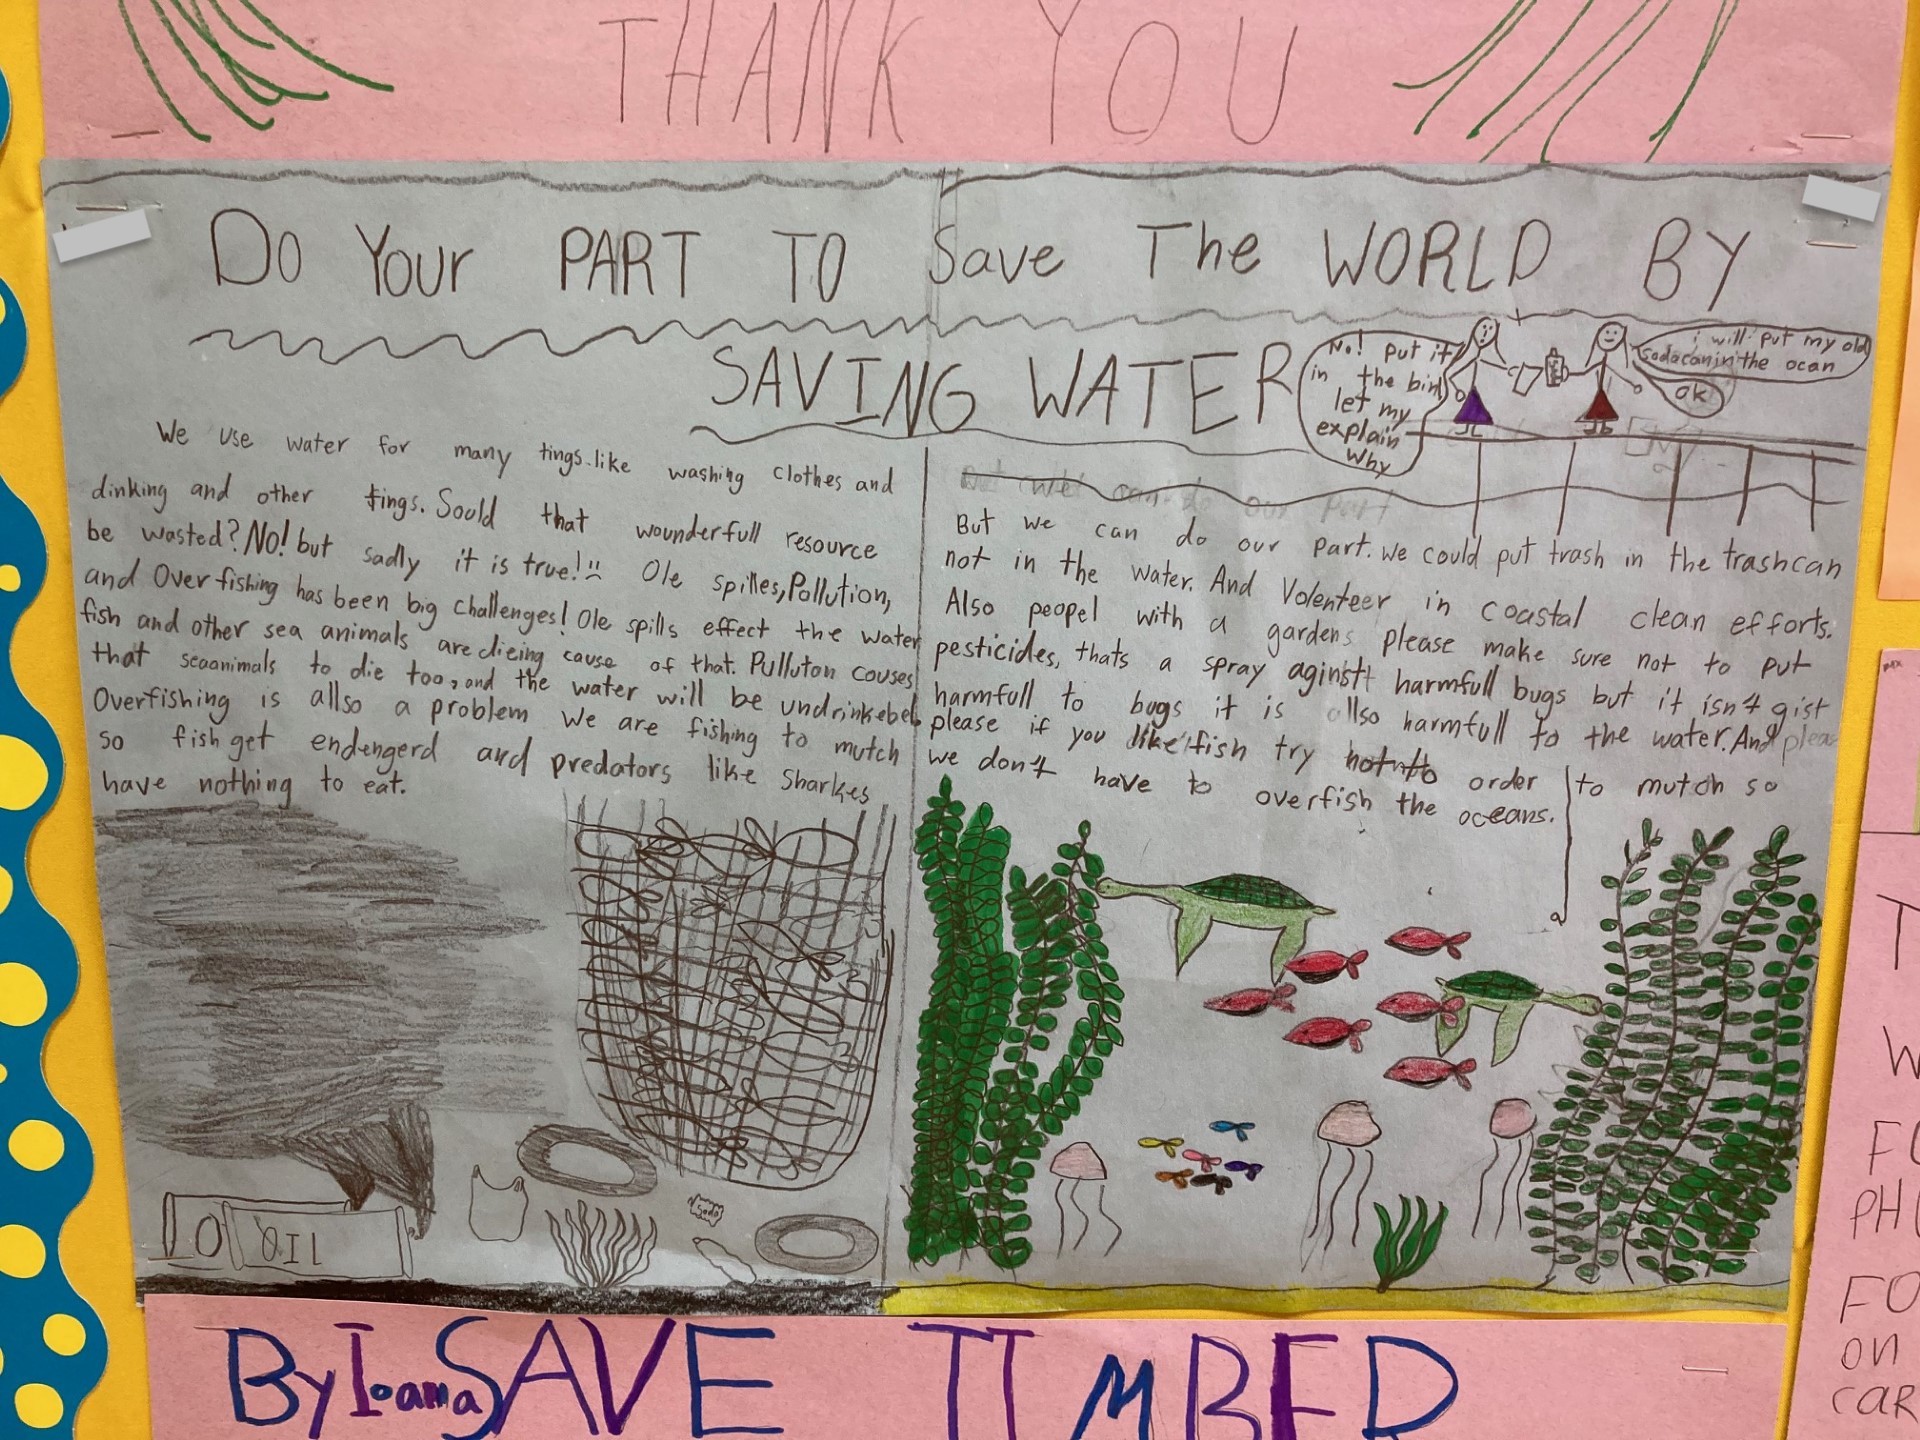 THANK YOU
DO YOUR PART TO Save The WORLD BY
SAVING WATER
No! put it
in the bin
let my
explain
why
i will put my old
sodacan in the ocan
ok
We use water for many tings like washing clothes and
dinking and other tings. Sould that wounderfull resource
be wasted? No! but sadly it is true! Ole spilles, Pollution,
and Over fishing has been big challenges! Ole spills effect the water
fish and other sea animals are dieing cause of that. Pulluton couses
that seaanimals to die too, and the water will be undrinkebel
Overfishing is allso a problem we are fishing to mutch
so fish get endengerd and predators like Sharkes
have nothing to eat.
But we can do our part
But we can do our part. we could put trash in the trashcan
not in the water. And Volenteer in coastal clean efforts.
Also peopel with a gardens please make sure not to put
pesticides, thats a spray aginstt harmfull bugs but it isn't gist
harmfull to bugs it is allso harmfull to the water. And pleas
please if you like fish try not to order to mutch so
we don't have to overfish the oceans.
O OIL
Soda
By Ioama SAVE TIMBER
T
W
FO
PH
FO
on
CAR